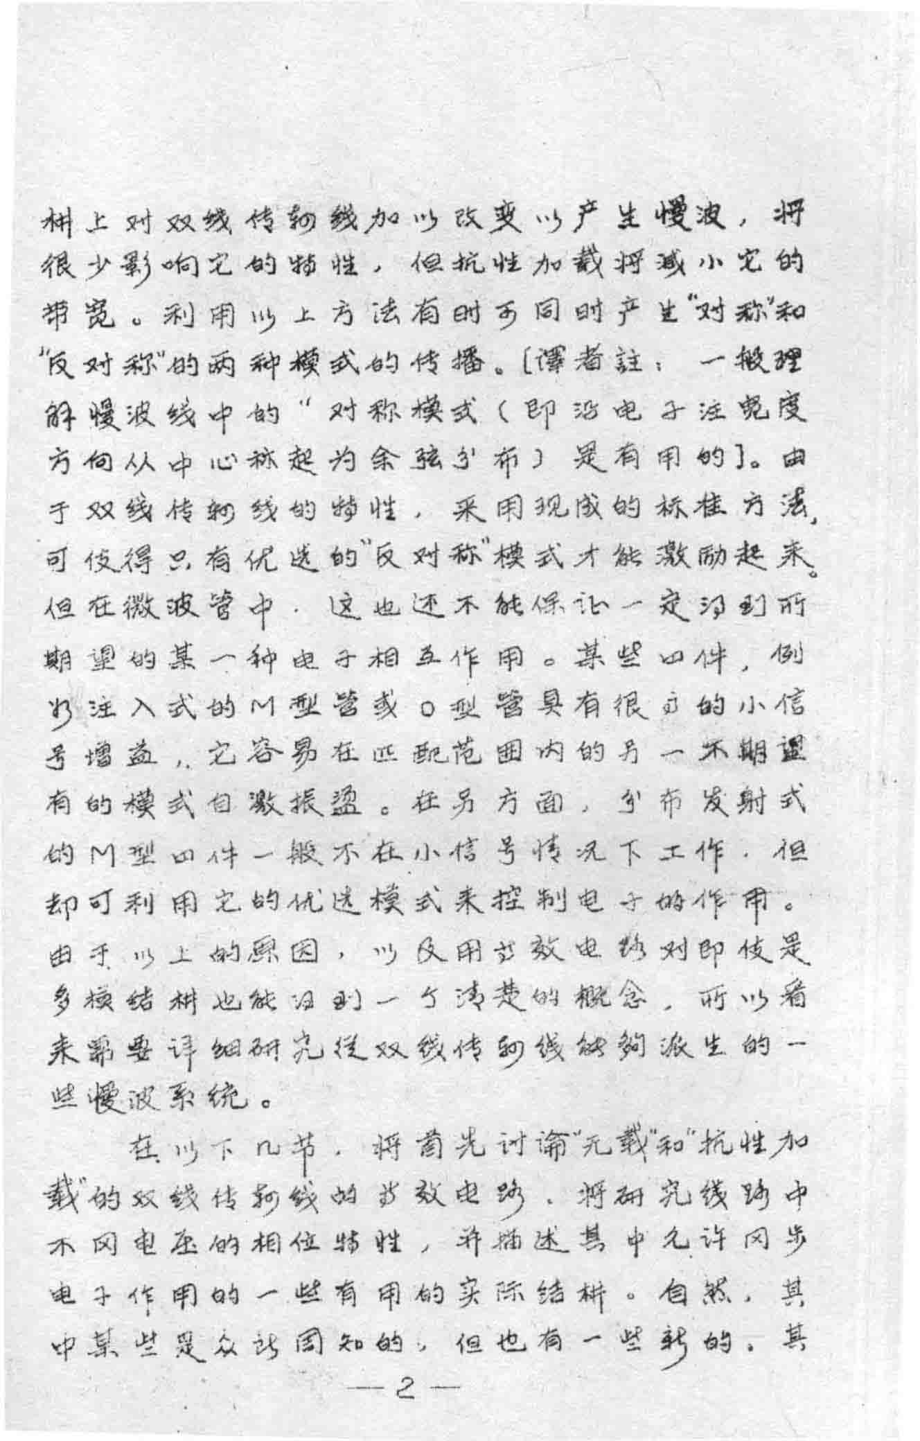 构上对双线传输线加以改变以产生慢波，将
很少影响它的特性，但抗性加载将减小它的
带宽。利用以上方法有时可同时产生“对称”和
“反对称”的两种模式的传播。[譯者註：一般理
解慢波线中的“对称模式（即沿电子注宽度
方向从中心称起为余弦分布）是有用的]。由
于双线传输线的特性，采用现成的标准方法，
可使得只有优选的“反对称”模式才能激励起来。
但在微波管中，这也还不能保证一定得到所
期望的某一种电子相互作用。某些四件，例
如注入式的M型管或O型管具有很高的小信
号增益，它容易在匹配范围内的另一不期望
有的模式自激振盪。在另方面，分布发射式
的M型四件一般不在小信号情况下工作，但
却可利用它的优选模式来控制电子的作用。
由于以上的原因，以及用等效电路对即使是
多模结构也能得到一个清楚的概念，所以看
来需要详细研究從双线传输线能夠派生的一
些慢波系统。
在以下几节，将首先讨論“无载”和“抗性加
载”的双线传输线的等效电路，将研究线路中
不同电压的相位特性，并描述其中允许同步
电子作用的一些有用的实际结构。自然，其
中某些是众所周知的，但也有一些新的。其
—2—